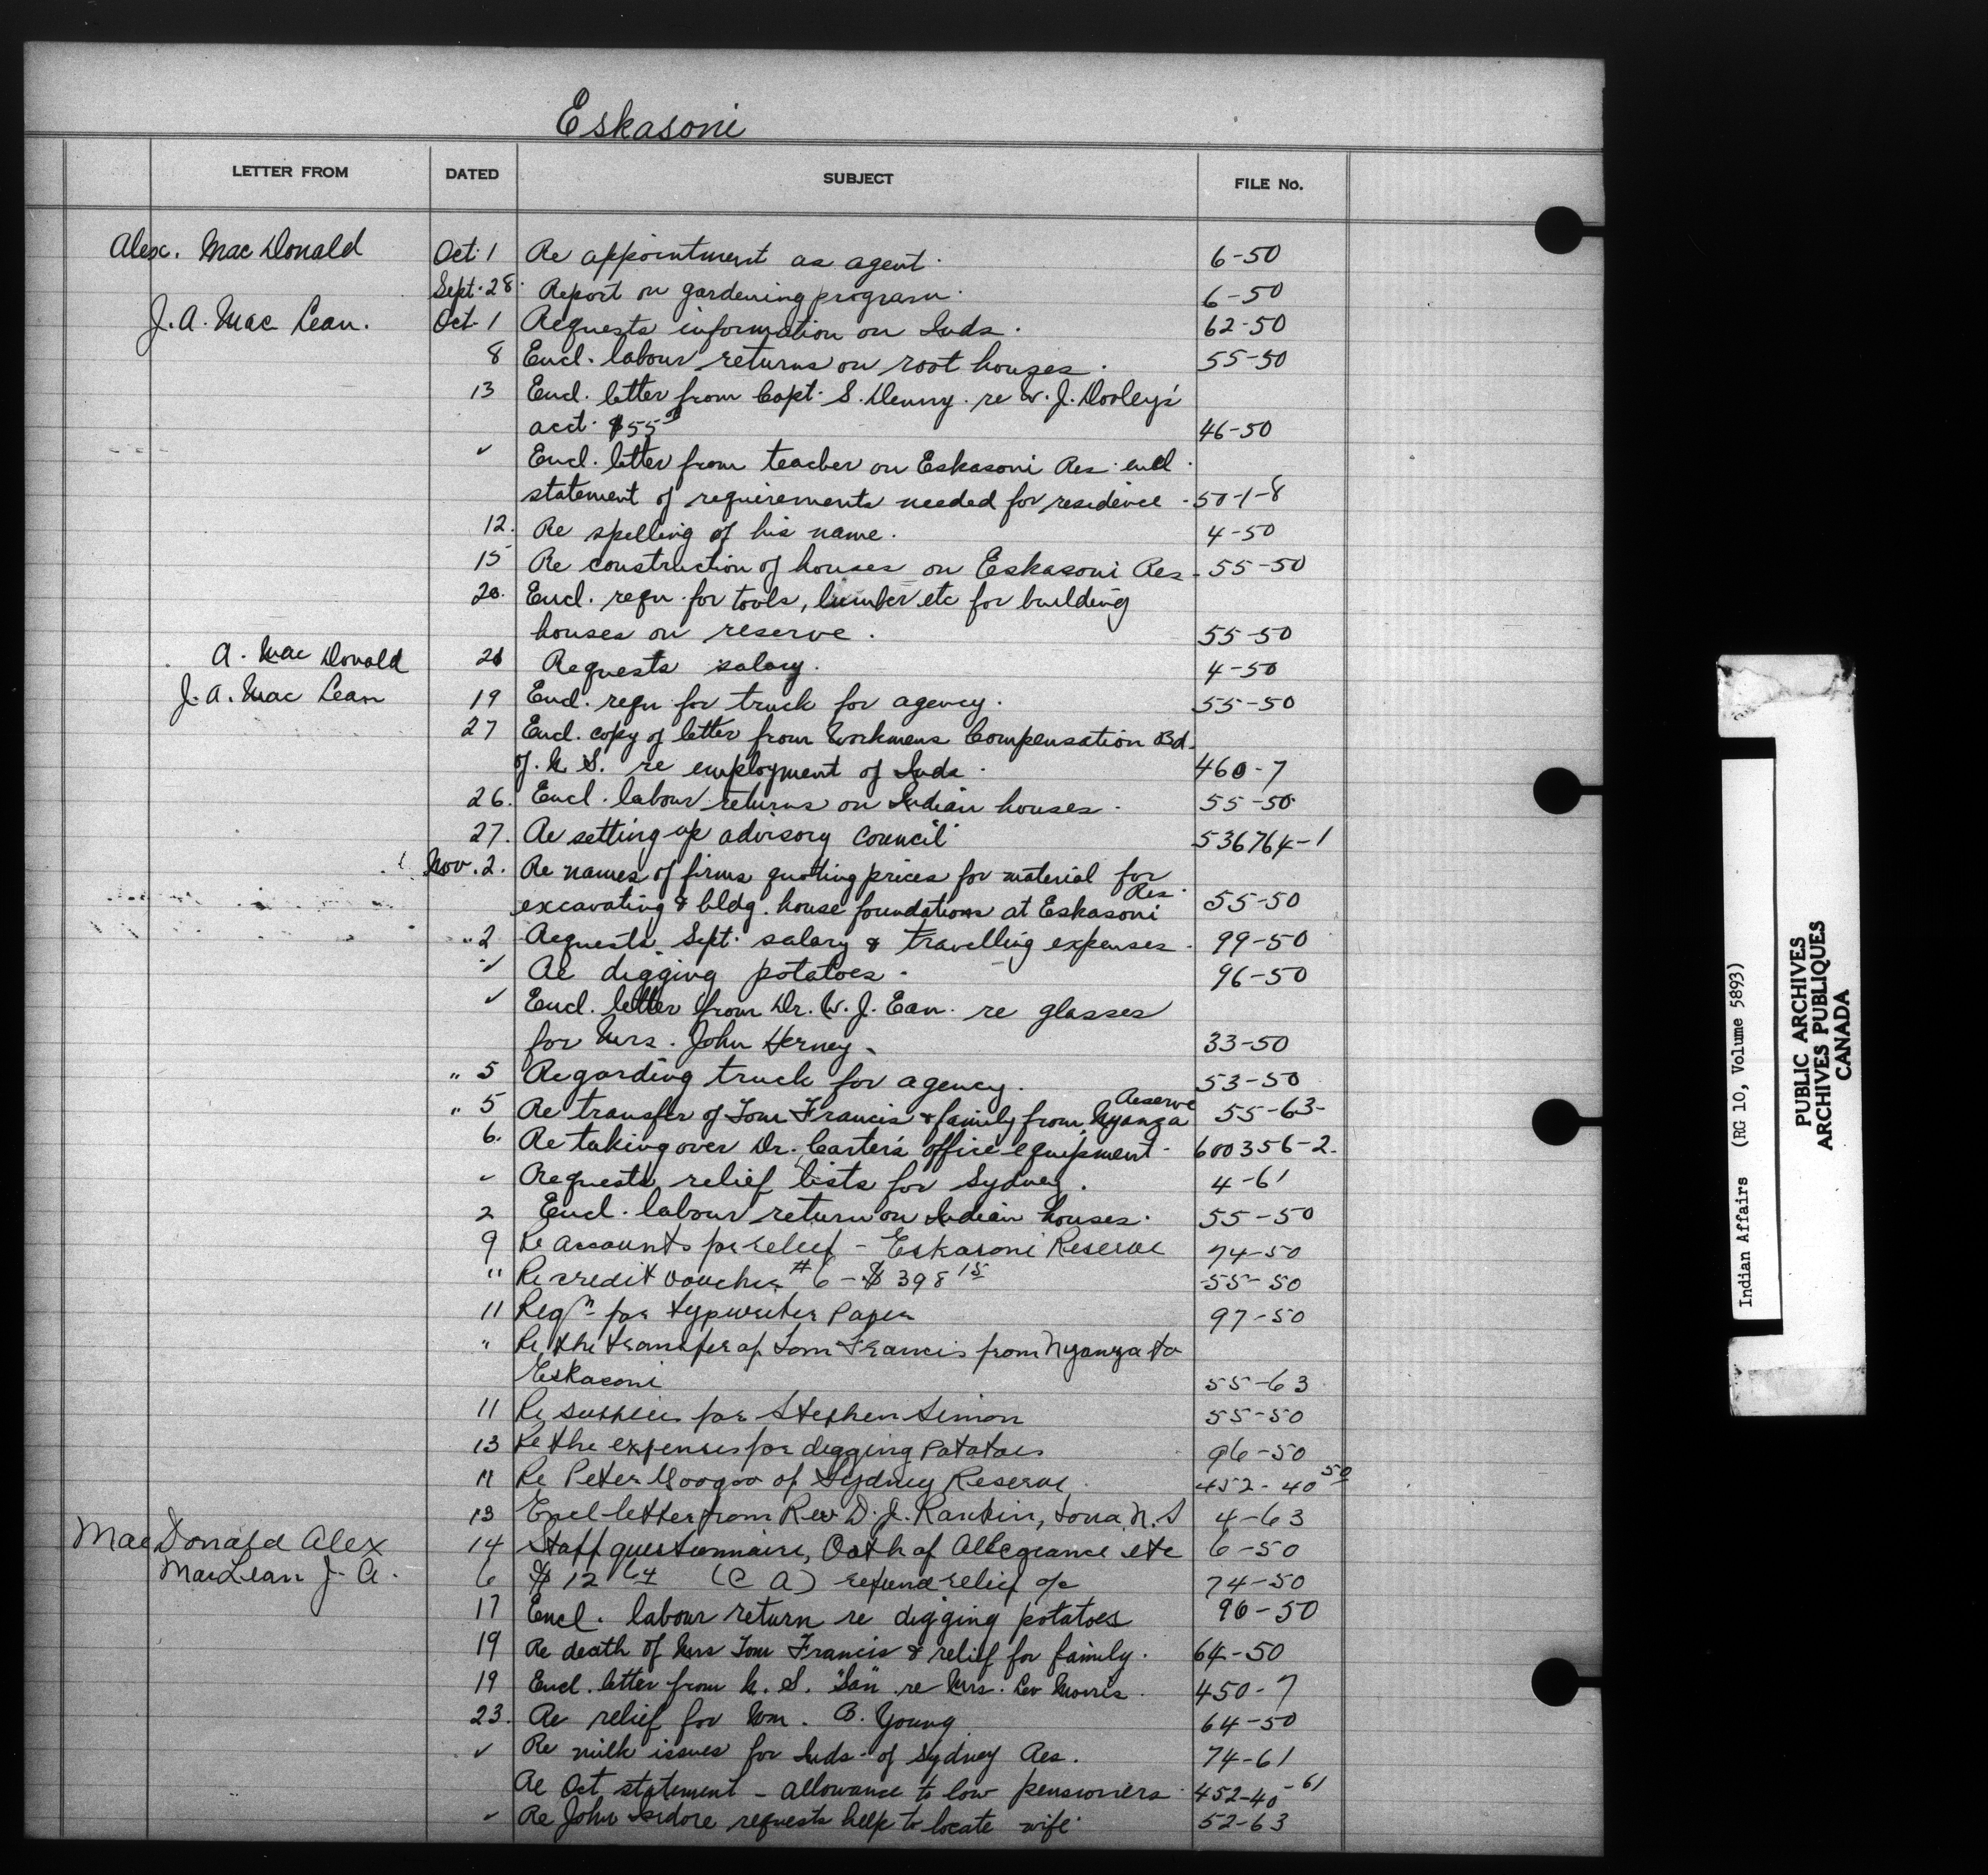 Eskasoni
LETTER FROM DATED SUBJECT FILE No.
Alex. MacDonald Oct. 1 Re appointment as agent. 6-50
Sept. 28. Report on gardening program. 6-50
J. A. MacLean. Oct. 1 Requests information on Inds. 62-50
8 Encl. labour returns on root houses. 55-50
13 Encl. letter from Capt. S. Denny. re W. J. Dooley's
acct. $55 46-50
✓ Encl. letter from teacher on Eskasoni Res. encl.
statement of requirements needed for residence - 50-1-8
12. Re spelling of his name. 4-50
15 Re construction of houses on Eskasoni Res - 55-50
20. Encl. requ. for tools, lumber etc for building
houses on reserve. 55-50
A. MacDonald 26 Requests salary. 4-50
J. A. MacLean 19 Encl. requ. for truck for agency. 55-50
27 Encl. copy of letter from Workmens Compensation Bd.
of N. S. re employment of Inds. 460-7
26. Encl. labour returns on Indian houses. 55-50
27. Re setting up advisory council 536764-1
Nov. 2. Re names of firms quoting prices for material for
excavating & bldg. house foundations at Eskasoni Res. 55-50
" 2 Requests Sept. salary & travelling expenses. 99-50
✓ Re digging potatoes. 96-50
✓ Encl. letter from Dr. W. J. Ean. re glasses
for Mrs. John Herney. 33-50
" 5 Regarding truck for agency. 53-50
" 5 Re transfer of Tom Francis & family from Nyanza Reserve 55-63-
6. Re taking over Dr. Carter's office equipment - 600356-2.
✓ Requests relief lists for Sydney. 4-61
2 Encl. labour return on Indian houses. 55-50
9 Re accounts for relief - Eskasoni Reserve 74-50
" Re credit voucher #6 - $398 15 55-50
11 Reqn for typewriter paper 97-50
" Re the transfer of Tom Francis from Nyanza to
Eskasoni 55-63
11 Re supplies for Stephen Simon 55-50
13 Re the expenses for digging Potatoes 96-50
11 Re Peter Googoo of Sydney Reserve. 452-40 50
13 Encl letter from Rev D. J. Rankin, Iona, N. S 4-63
MacDonald Alex 14 Staff questionnaire, Oath of Allegiance etc 6-50
MacLean J. A. 6 $12 64 (C A) refund relief a/c 74-50
17 Encl. labour return re digging potatoes 96-50
19 Re death of Mrs Tom Francis & relief for family. 64-50
19 Encl. letter from N. S. "San" re Mrs. Leo Morris. 450-7
23. Re relief for Wm. B. Young 64-50
✓ Re milk issues for Inds. of Sydney Res. 74-61
Re Oct statement - allowance to low pensioners. 452-40-61
✓ Re John Isidore requests help to locate wife. 52-63
Indian Affairs (RG 10, Volume 5893)
PUBLIC ARCHIVES
ARCHIVES PUBLIQUES
CANADA